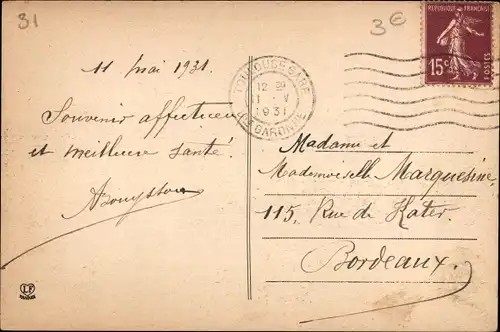 31
3€
RÉPUBLIQUE FRANÇAISE
15c
POSTES
TOULOUSE GARE
12 30
11 V
1931
Hte GARONNE
11 mai 1931.
Souvenir affectueux
et meilleure santé.
Madame et
Mademoiselle Marquesine
115, Rue de Kater.
Bordeaux.
LF